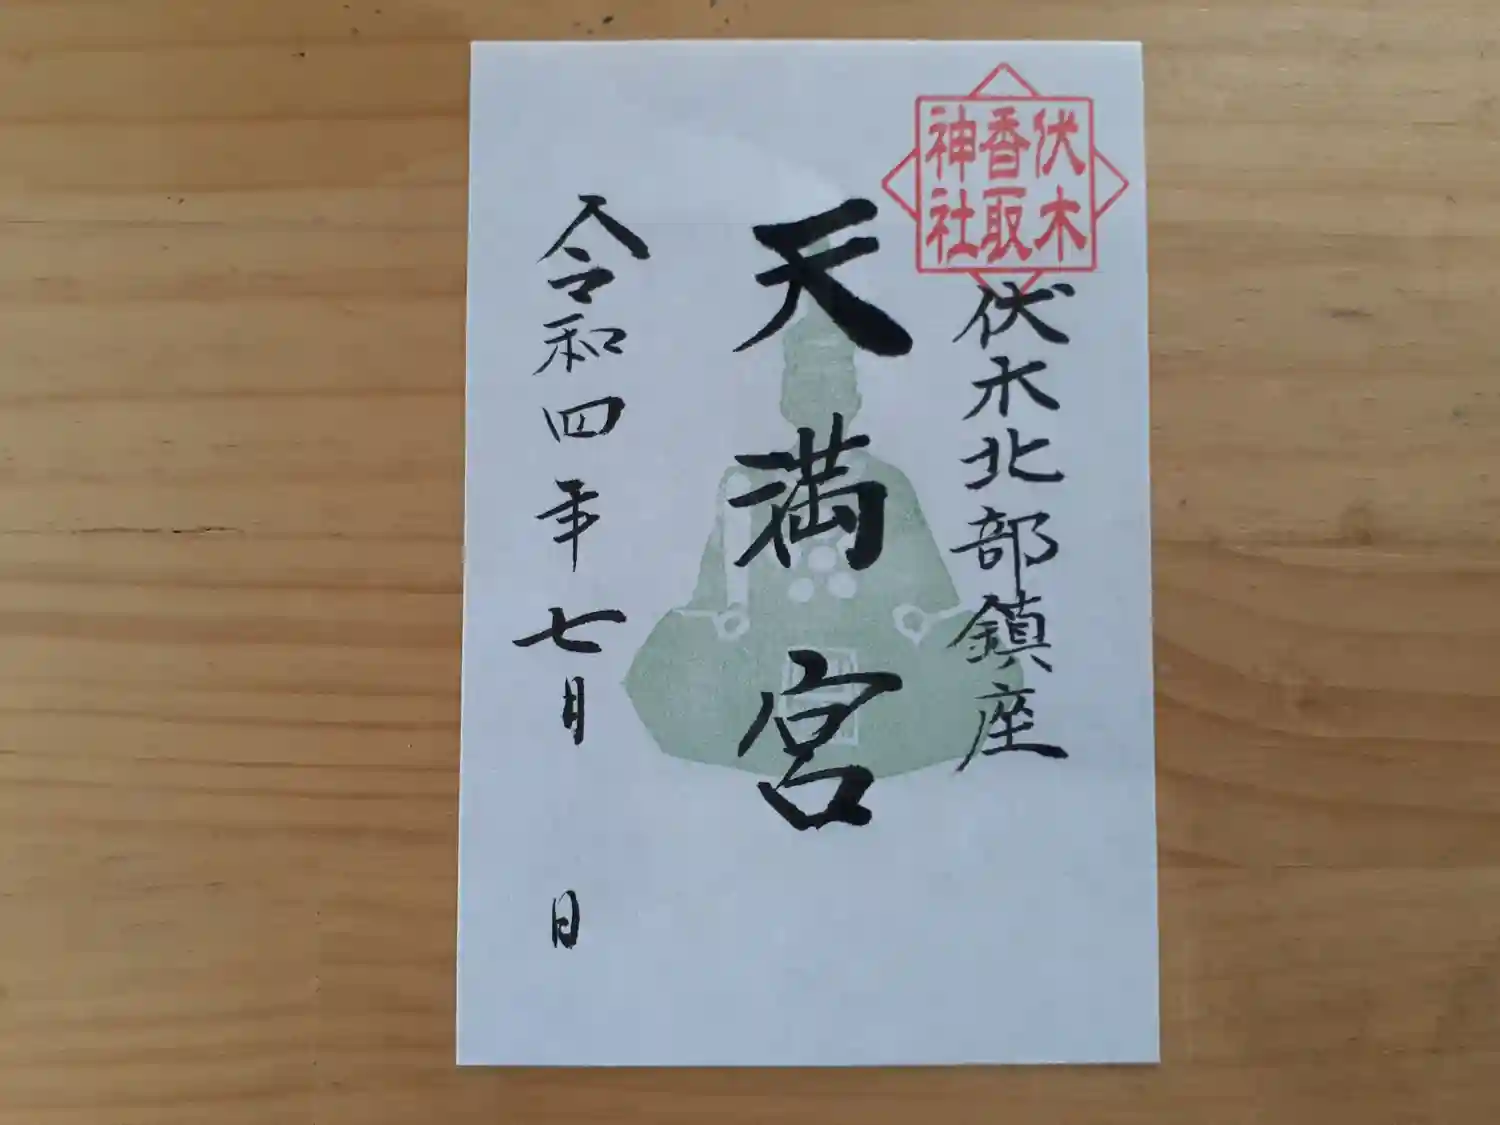 伏木
香取
神社
伏木北部鎮座
天満宮
令和四年七月 日